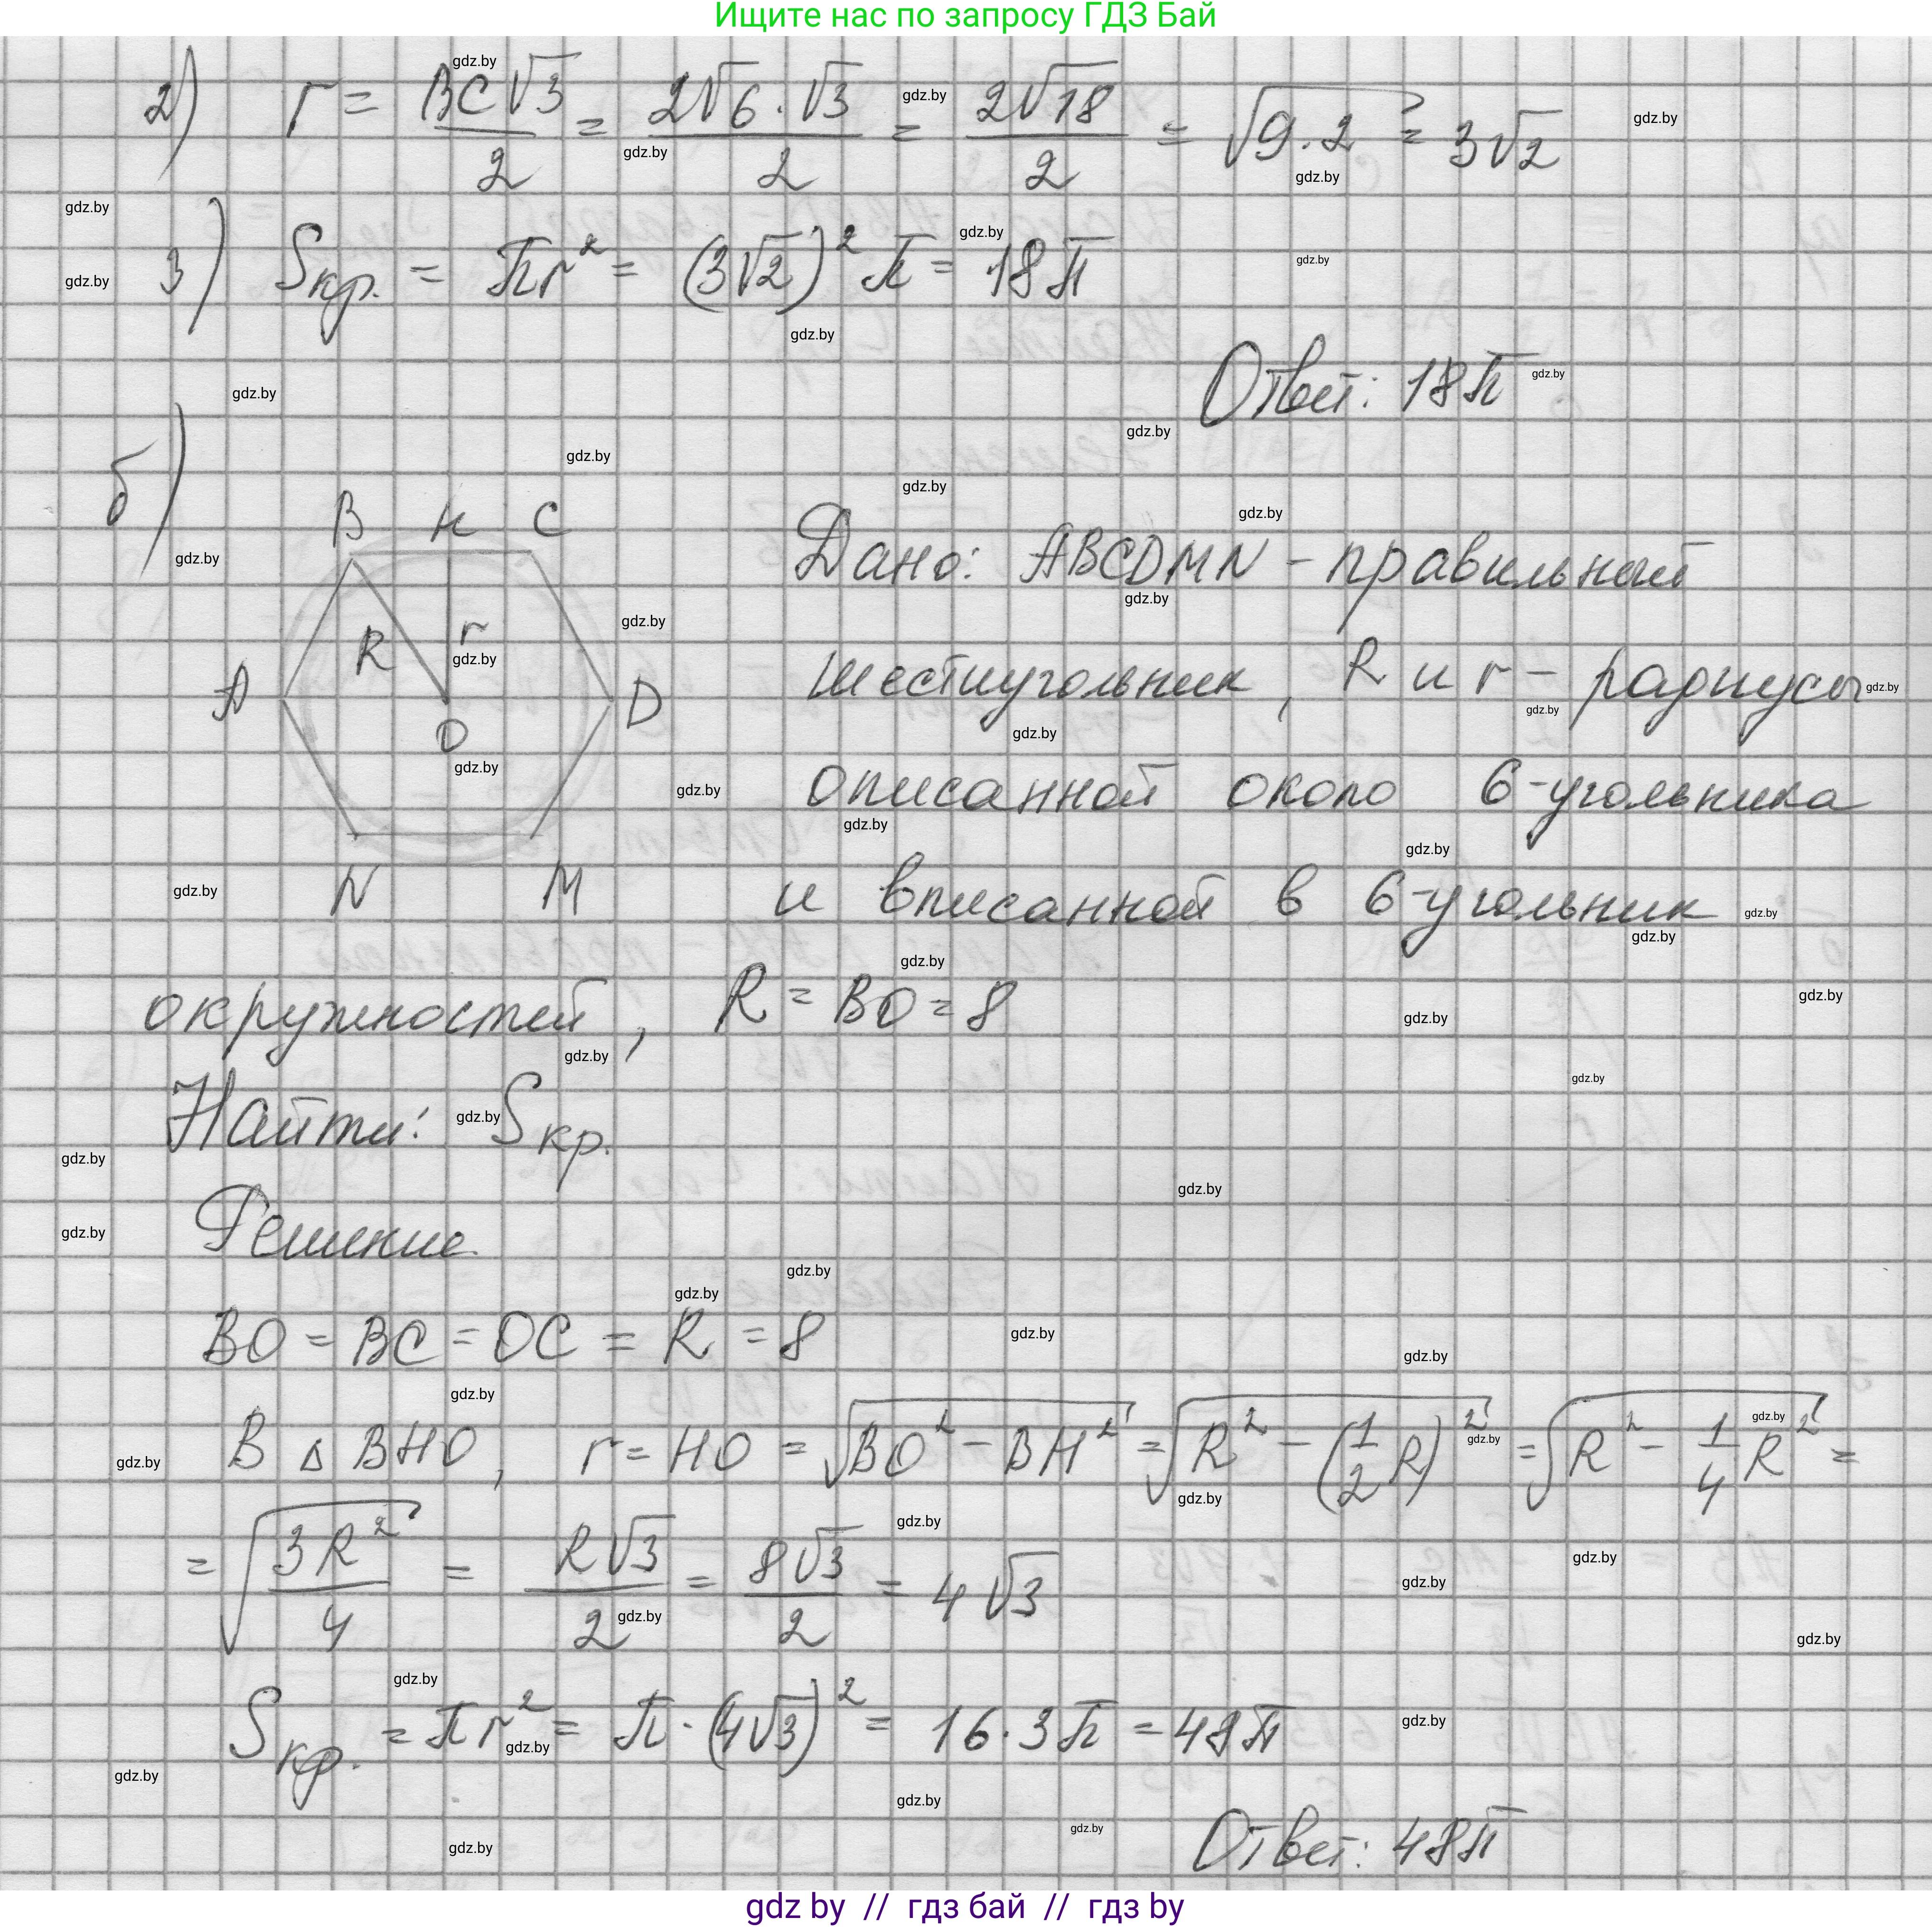 Ищите нас по запросу ГДЗ Бай
2) r = BC√3/2 = 2√6·√3/2 = 2√18/2 = √9·2 = 3√2
3) Sкр. = πr² = (3√2)²π = 18π
Ответ: 18π
б)
B H C
R r
A D
O
N M
Дано: ABCDMN - правильный
шестиугольник, R и r - радиусы
описанной около 6-угольника
и вписанной в 6-угольник
окружностей, R = BO = 8
Найти: Sкр.
Решение
BO = BC = OC = R = 8
В △ BHO, r = HO = √(BO² - BH²) = √(R² - (1/2 R)²) = √(R² - 1/4 R²) =
= √(3R²/4) = R√3/2 = 8√3/2 = 4√3
Sкр. = πr² = π·(4√3)² = 16·3π = 48π
Ответ: 48π
gdz by // гдз бай // гдз by